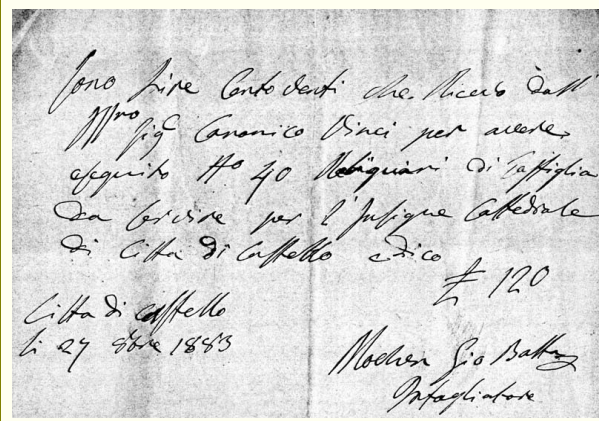 Sono Lire Cento Venti che Ricevo dall'
Ill.mo Sig. Canonico Vinci per avere
eseguito N° 40 Reliquiari di
da servire per l'Insigne Cattedrale
di Citta di Castello e dico
£ 120
Citta di Castello
li 27 8bre 1883
Gio Batta
Intagliatore